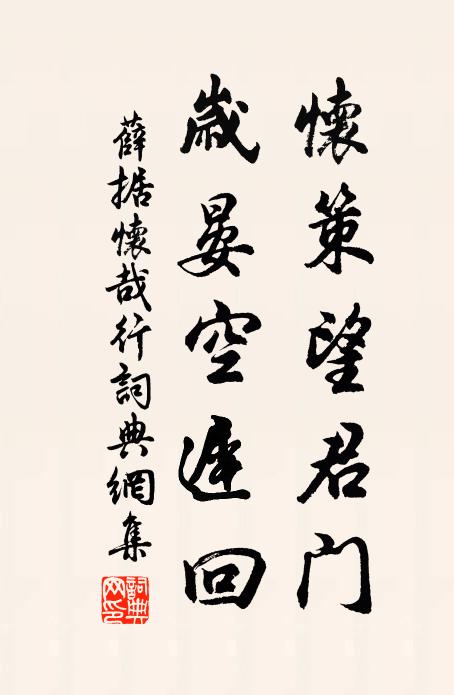 懷策望君门
歲晏空遲回
薛据懷哉行詞典網集
詞典网印